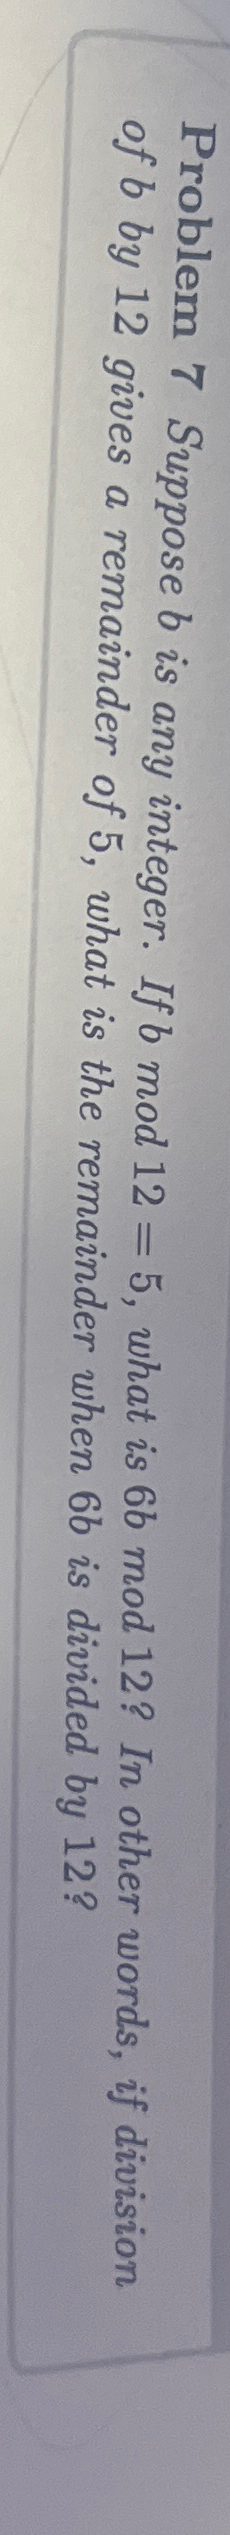 Problem 7 Suppose b is any integer. If b mod 12 = 5, what is 6b mod 12? In other words, if division
of b by 12 gives a remainder of 5, what is the remainder when 6b is divided by 12?